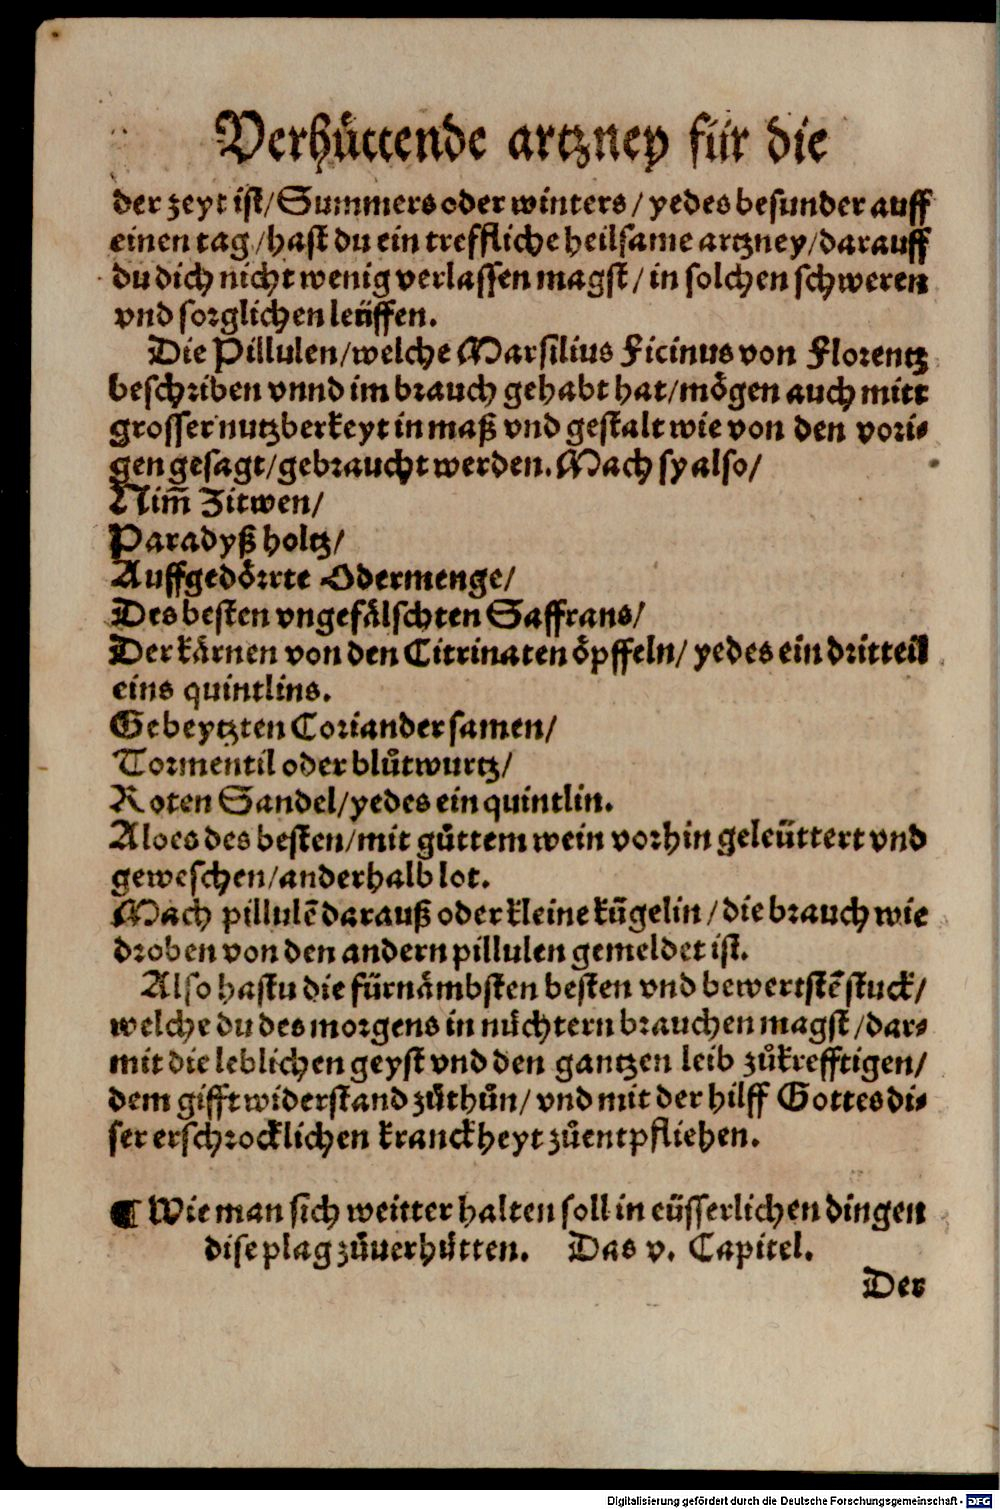 Verhuͤttende artzney für die
der zeyt ist/Summers oder winters/yedes besunder auff
einen tag/hast du ein treffliche heilsame artzney/darauff
du dich nicht wenig verlassen magst/in solchen schweren
vnd sorglichen leüffen.
Die Pillulen/welche Marsilius Ficinus von Florentz
beschriben vnnd im brauch gehabt hat/moͤgen auch mitt
grosser nutzberkeyt in maß vnd gestalt wie von den vori-
gen gesagt/gebraucht werden. Mach sy also/
Nim̃ Zitwen/
Paradyß holtz/
Auffgedoͤrrte Odermenge/
Des besten vngefaͤlschten Saffrans/
Der kaͤrnen von den Citrinaten oͤpffeln/yedes ein dritteil
eins quintlins.
Gebeytzten Coriander samen/
Tormentil oder bluͦtwurtz/
Roten Sandel/yedes ein quintlin.
Aloes des besten/mit guͦttem wein vorhin geleüttert vnd
geweschen/anderhalb lot.
Mach pillulẽ darauß oder kleine kügelin/die brauch wie
droben von den andern pillulen gemeldet ist.
Also hastu die fürnaͤmbsten besten vnd bewertstẽ stuck/
welche du des morgens in nuͤchtern brauchen magst/dar-
mit die leblichen geyst vnd den gantzen leib zuͦkrefftigen/
dem gifft widerstand zuͦthuͦn/vnd mit der hilff Gottes di-
ser erschrocklichen kranckheyt zuͦentpfliehen.
¶ Wie man sich weitter halten soll in eüsserlichen dingen
dise plag zuͦuerhuͤtten. Das v. Capitel.
Der
Digitalisierung gefördert durch die Deutsche Forschungsgemeinschaft - DFG